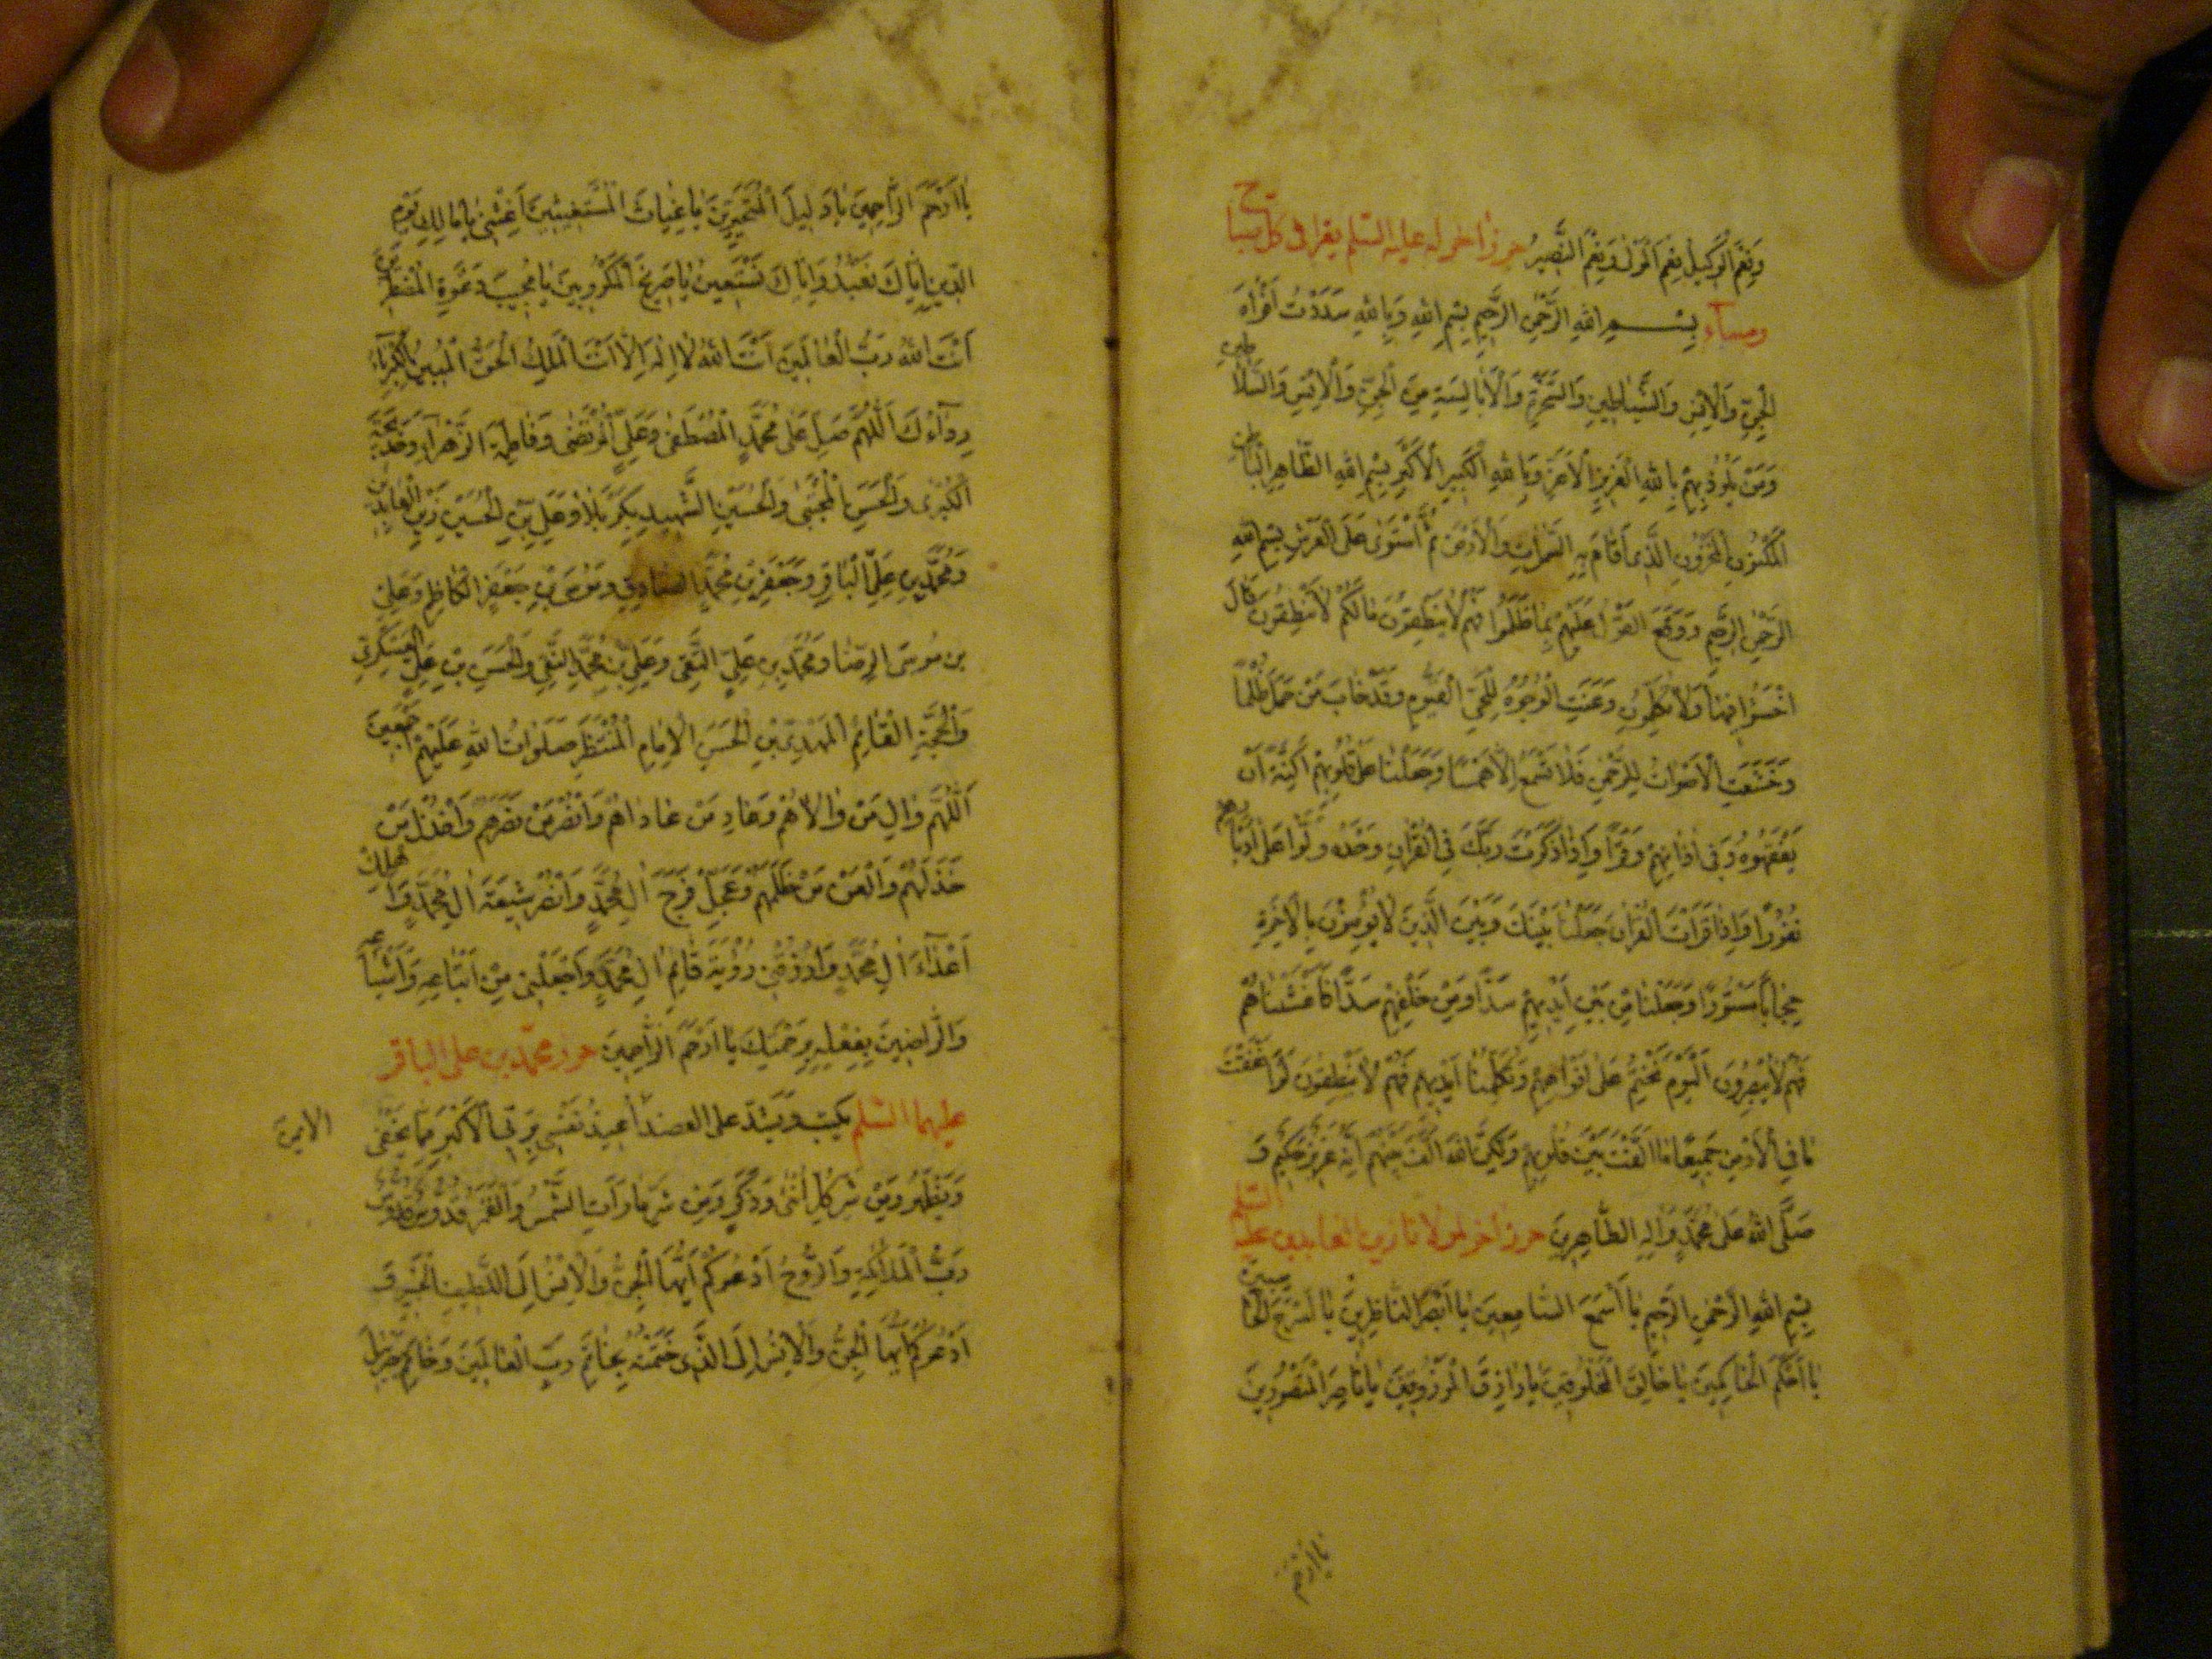 وَنِعْمَ الْوَكِيلُ نِعْمَ الْمَوْلٰى وَنِعْمَ النَّصِيرُ حرز اخر له عليه السّلم يقرا فى كل صباح
ومساء بِسْمِ اللهِ الرَّحْمٰنِ الرَّحِيمِ بِسْمِ اللهِ وَبِاللهِ سَدَدْتُ اَفْوَاهَ
الْجِنِّ وَالْاِنْسِ وَالشَّيَاطِينِ وَالسَّحَرَةِ وَالْاَبَالِسَةِ مِنَ الْجِنِّ وَالْاِنْسِ وَالسَّلَاطِينِ
وَمَنْ يَلُوذُ بِهِمْ بِاللهِ الْعَزِيزِ الْاَعَزِّ وَبِاللهِ الْكَبِيرِ الْاَكْبَرِ بِسْمِ اللهِ الظَّاهِرِ الْبَاطِنِ
الْمَكْنُونِ الْمَخْزُونِ الَّذِى اَقَامَ بِهِ السَّمٰوَاتِ وَالْاَرْضَ ثُمَّ اسْتَوٰى عَلَى الْعَرْشِ بِسْمِ اللهِ
الرَّحْمٰنِ الرَّحِيمِ وَوَقَعَ الْقَوْلُ عَلَيْهِمْ بِمَا ظَلَمُوا فَهُمْ لَا يَنْطِقُونَ مَا لَكُمْ لَا تَنْطِقُونَ قَالَ
اخْسَؤُا فِيهَا وَلَا تُكَلِّمُونِ وَعَنَتِ الْوُجُوهُ لِلْحَيِّ الْقَيُّومِ وَقَدْ خَابَ مَنْ حَمَلَ ظُلْمًا
وَخَشَعَتِ الْاَصْوَاتُ لِلرَّحْمٰنِ فَلَا تَسْمَعُ اِلَّا هَمْسًا وَجَعَلْنَا عَلٰى قُلُوبِهِمْ اَكِنَّةً اَنْ
يَفْقَهُوهُ وَفِى اٰذَانِهِمْ وَقْرًا وَاِذَا ذَكَرْتَ رَبَّكَ فِى الْقُرْاٰنِ وَحْدَهُ وَلَّوْا عَلٰى اَدْبَارِهِمْ
نُفُورًا وَاِذَا قَرَاْتَ الْقُرْاٰنَ جَعَلْنَا بَيْنَكَ وَبَيْنَ الَّذِينَ لَا يُؤْمِنُونَ بِالْاٰخِرَةِ
حِجَابًا مَسْتُورًا وَجَعَلْنَا مِنْ بَيْنِ اَيْدِيهِمْ سَدًّا وَمِنْ خَلْفِهِمْ سَدًّا فَاَغْشَيْنَاهُمْ
فَهُمْ لَا يُبْصِرُونَ الْيَوْمَ نَخْتِمُ عَلٰى اَفْوَاهِهِمْ وَتُكَلِّمُنَا اَيْدِيهِمْ فَهُمْ لَا يَنْطِقُونَ لَوْ اَنْفَقْتَ
مَا فِى الْاَرْضِ جَمِيعًا مَا اَلَّفْتَ بَيْنَ قُلُوبِهِمْ وَلٰكِنَّ اللهَ اَلَّفَ بَيْنَهُمْ اِنَّهُ عَزِيزٌ حَكِيمٌ وَ
صَلَّى اللهُ عَلٰى مُحَمَّدٍ وَاٰلِهِ الطَّاهِرِينَ حرز اخر لمولانا زين العابدين عليه السّلم
بِسْمِ اللهِ الرَّحْمٰنِ الرَّحِيمِ يَا اَسْمَعَ السَّامِعِينَ يَا اَبْصَرَ النَّاظِرِينَ يَا اَسْرَعَ الْحَاسِبِينَ
يَا اَحْكَمَ الْحَاكِمِينَ يَا خَالِقَ الْمَخْلُوقِينَ يَا رَازِقَ الْمَرْزُوقِينَ يَا نَاصِرَ الْمَنْصُورِينَ
يا ارحم
يَا اَرْحَمَ الرَّاحِمِينَ يَا دَلِيلَ الْمُتَحَيِّرِينَ يَا غِيَاثَ الْمُسْتَغِيثِينَ اَغِثْنِى يَا مَالِكَ يَوْمِ
الدِّينِ اِيَّاكَ نَعْبُدُ وَاِيَّاكَ نَسْتَعِينُ يَا صَرِيخَ الْمَكْرُوبِينَ يَا مُجِيبَ دَعْوَةِ الْمُضْطَرِّينَ
اَنْتَ اللهُ رَبُّ الْعَالَمِينَ اَنْتَ اللهُ لَا اِلٰهَ اِلَّا اَنْتَ الْمَلِكُ الْحَقُّ الْمُبِينُ الْكِبْرِيَاءُ
رِدَاؤُكَ اَللّٰهُمَّ صَلِّ عَلٰى مُحَمَّدٍ الْمُصْطَفٰى وَعَلِيٍّ الْمُرْتَضٰى وَفَاطِمَةَ الزَّهْرَاءِ وَخَدِيجَةَ
الْكُبْرٰى وَالْحَسَنِ الْمُجْتَبٰى وَالْحُسَيْنِ الشَّهِيدِ بِكَرْبَلَا وَعَلِيِّ بْنِ الْحُسَيْنِ زَيْنِ الْعَابِدِينَ
وَمُحَمَّدِ بْنِ عَلِيٍّ الْبَاقِرِ وَجَعْفَرِ بْنِ مُحَمَّدٍ الصَّادِقِ وَمُوسَى بْنِ جَعْفَرٍ الْكَاظِمِ وَعَلِيِّ
بْنِ مُوسَى الرِّضَا وَمُحَمَّدِ بْنِ عَلِيٍّ التَّقِى وَعَلِيِّ بْنِ مُحَمَّدٍ النَّقِى وَالْحَسَنِ بْنِ عَلِيٍّ الْعَسْكَرِيِّ
وَالْحُجَّةِ الْقَائِمِ الْمَهْدِيِّ بْنِ الْحَسَنِ الْاِمَامِ الْمُنْتَظَرِ صَلَوَاتُ اللهِ عَلَيْهِمْ اَجْمَعِينَ
اَللّٰهُمَّ وَالِ مَنْ وَالَاهُمْ وَعَادِ مَنْ عَادَاهُمْ وَانْصُرْ مَنْ نَصَرَهُمْ وَاخْذُلْ مَنْ
خَذَلَهُمْ وَالْعَنْ مَنْ ظَلَمَهُمْ وَعَجِّلْ فَرَجَ اٰلِ مُحَمَّدٍ وَانْصُرْ شِيعَةَ اٰلِ مُحَمَّدٍ وَاَهْلِكْ
اَعْدَاءَ اٰلِ مُحَمَّدٍ وَارْزُقْنِى رُؤْيَةَ قَائِمِ اٰلِ مُحَمَّدٍ وَاجْعَلْنِى مِنْ اَتْبَاعِهِ وَاَشْيَاعِهِ
وَالرَّاضِينَ بِفِعْلِهِ بِرَحْمَتِكَ يَا اَرْحَمَ الرَّاحِمِينَ حرز محمّد بن على الباقر
عليهما السّلم يكتب ويشدّ على العضد اُعِيذُ نَفْسِى بِرَبِّىَ الْاَكْبَرِ مِمَّا يَخْفٰى
الايمن
وَيَظْهَرُ وَمِنْ شَرِّ كُلِّ اُنْثٰى وَذَكَرٍ وَمِنْ شَرِّ مَا رَاَتِ الشَّمْسُ وَالْقَمَرُ قُدُّوسٌ قُدُّوسٌ
رَبُّ الْمَلَائِكَةِ وَالرُّوحِ اَدْعُوكُمْ اَيُّهَا الْجِنُّ وَالْاِنْسُ اِلَى اللَّطِيفِ الْخَبِيرِ وَ
اَدْعُوكُمْ اَيُّهَا الْجِنُّ وَالْاِنْسُ اِلَى الَّذِى خَتَمْتُهُ بِخَاتَمِ رَبِّ الْعَالَمِينَ وَخَاتَمِ جَبْرَئِيلَ